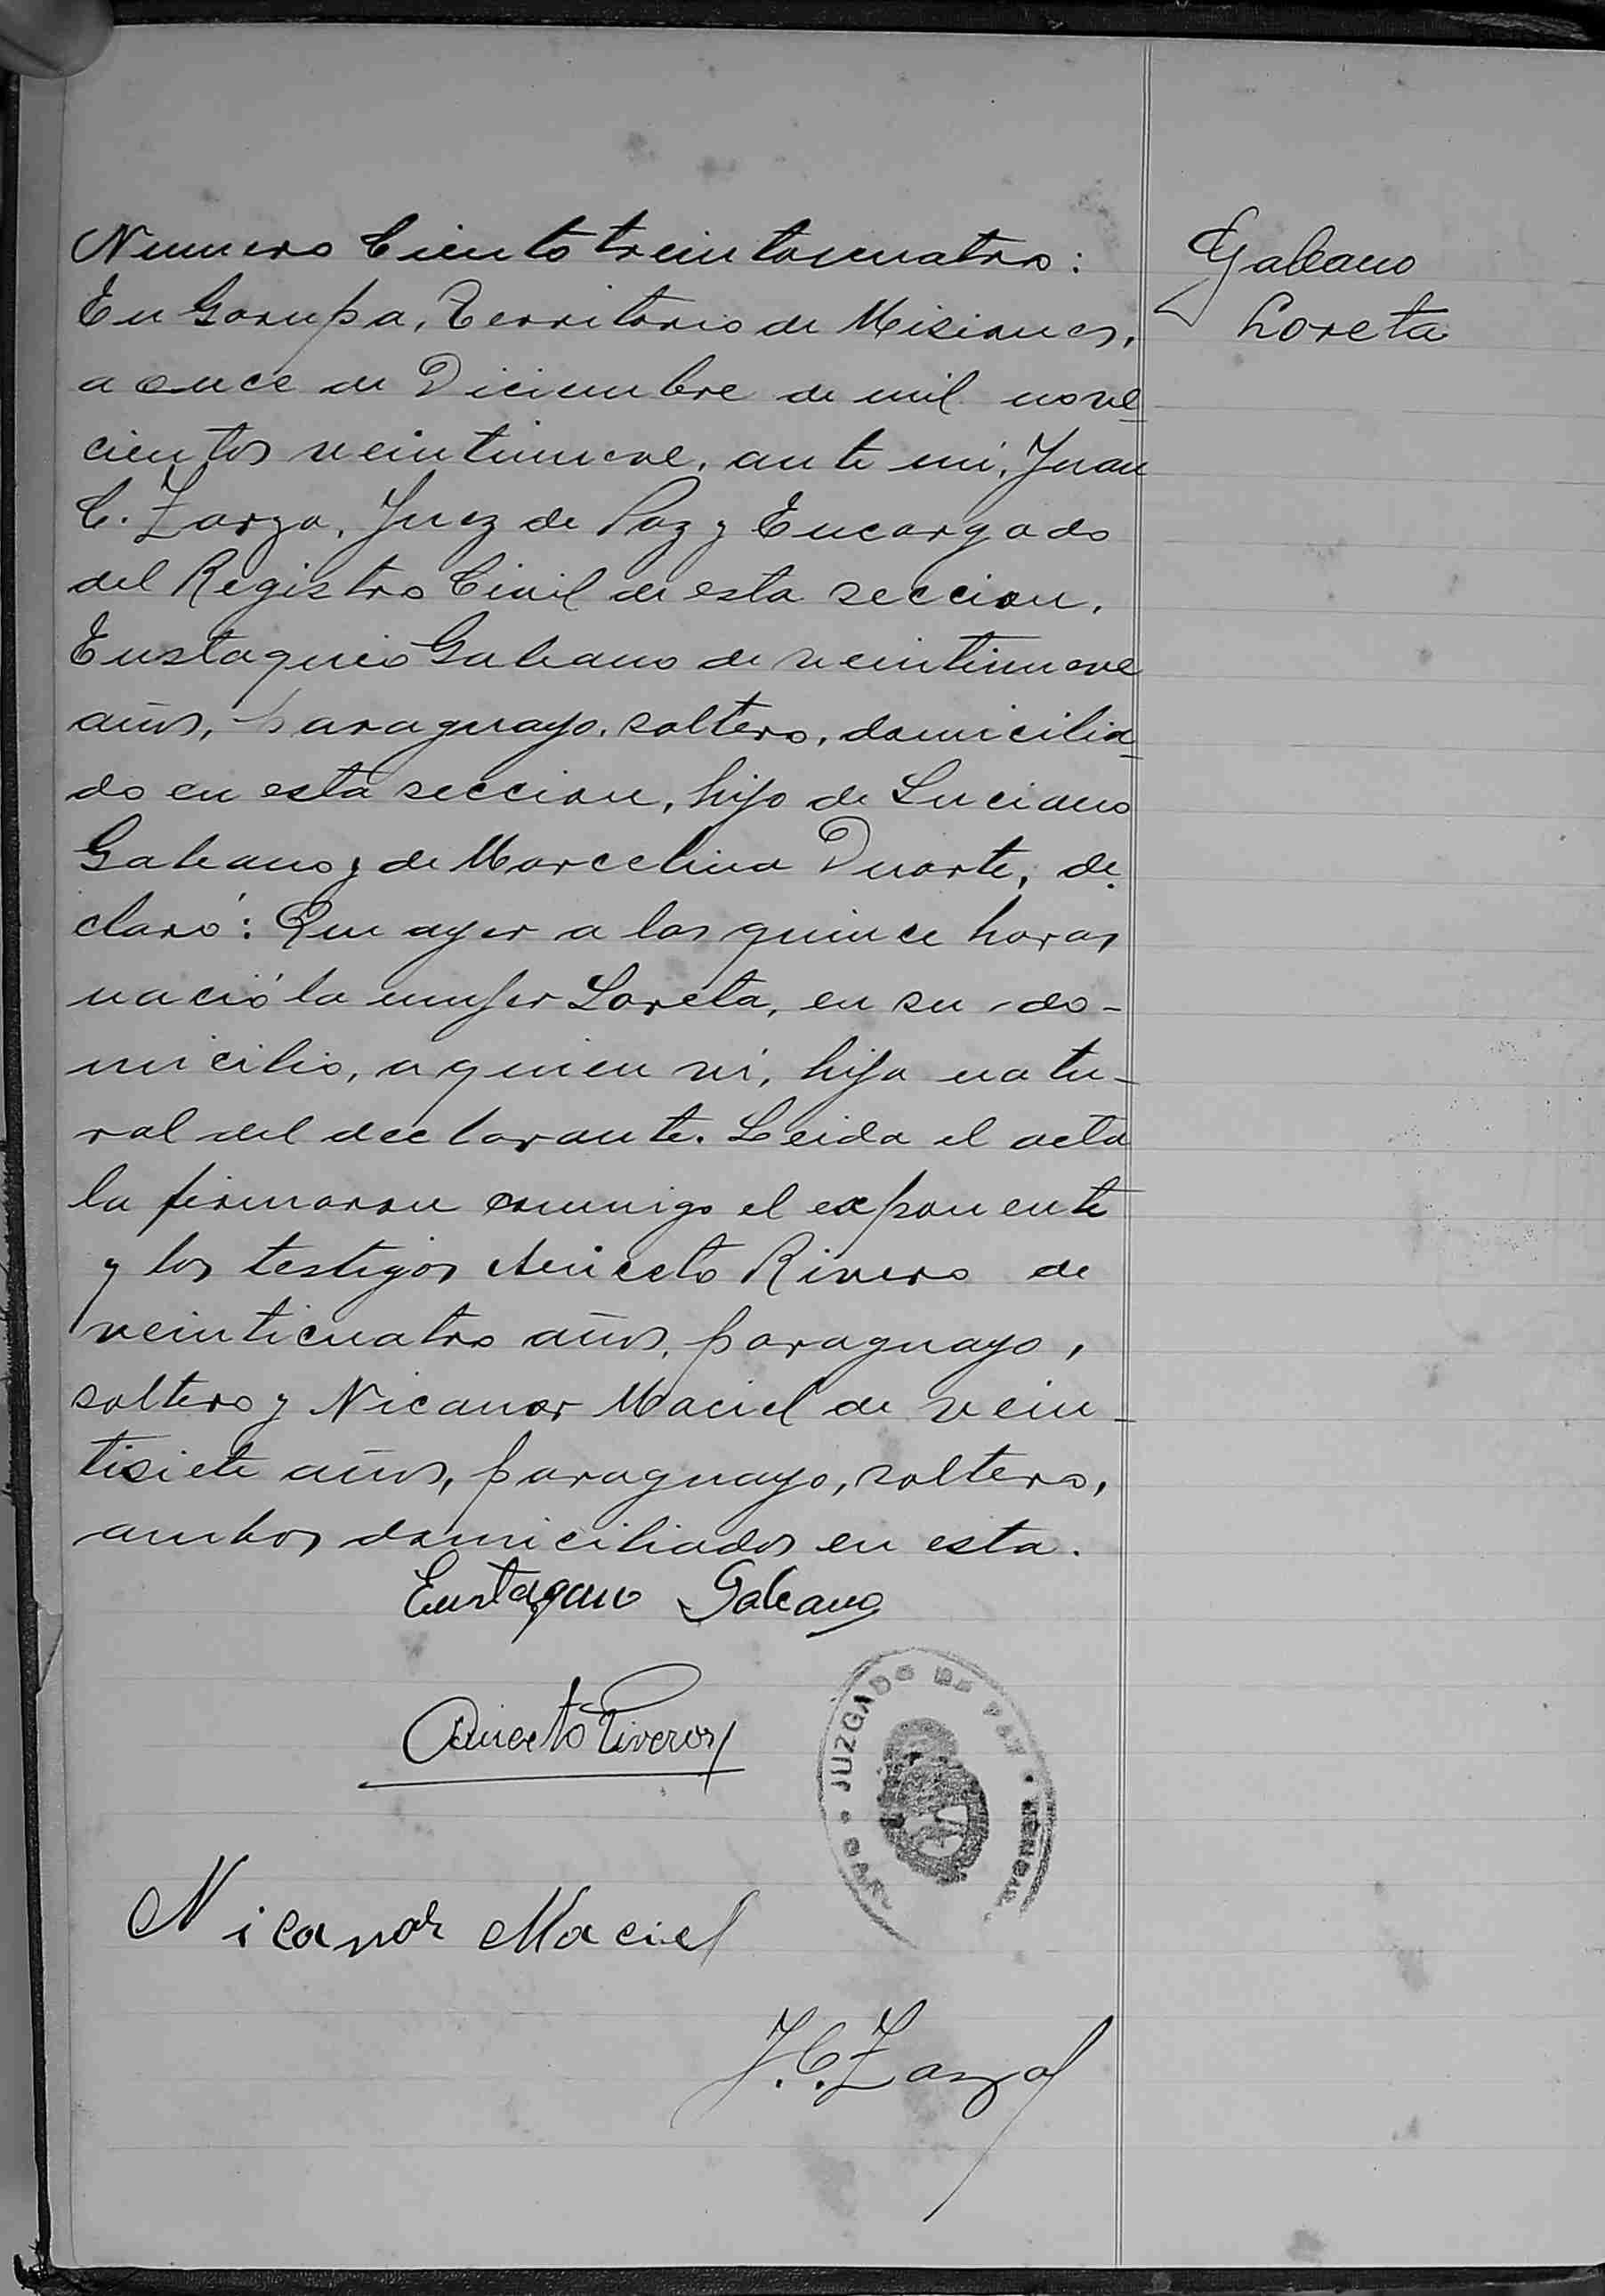 Numero Ciento treintacuatro:
En Garupa, Territorio de Misiones,
a once de Diciembre de mil nove-
cientos veintinueve, ante mi, Juan
C. Zarza, Juez de Paz y Encargado
del Registro Civil de esta seccion,
Eustaquio Galeano de veintinueve
años, paraguayo, soltero, domicilia-
do en esta seccion, hijo de Luciano
Galeano y de Marcelina Duarte, de-
claró: Que ayer a las quince horas
nació la mujer Loreta, en su do-
micilio, a quien vi, hija natu-
ral del declarante. Leida el acta
la firmaron conmigo el exponente
y los testigos Aniceto Rivero de
veinticuatro años, paraguayo,
soltero y Nicanor Maciel de vein-
tisiete años, paraguayo, soltero,
ambos domiciliados en esta.
Galeano
Loreta
Eustaquio Galeano
Aniceto Riveros
JUZGADO DE PAZ
Nicanor Maciel
J.C. Zarza